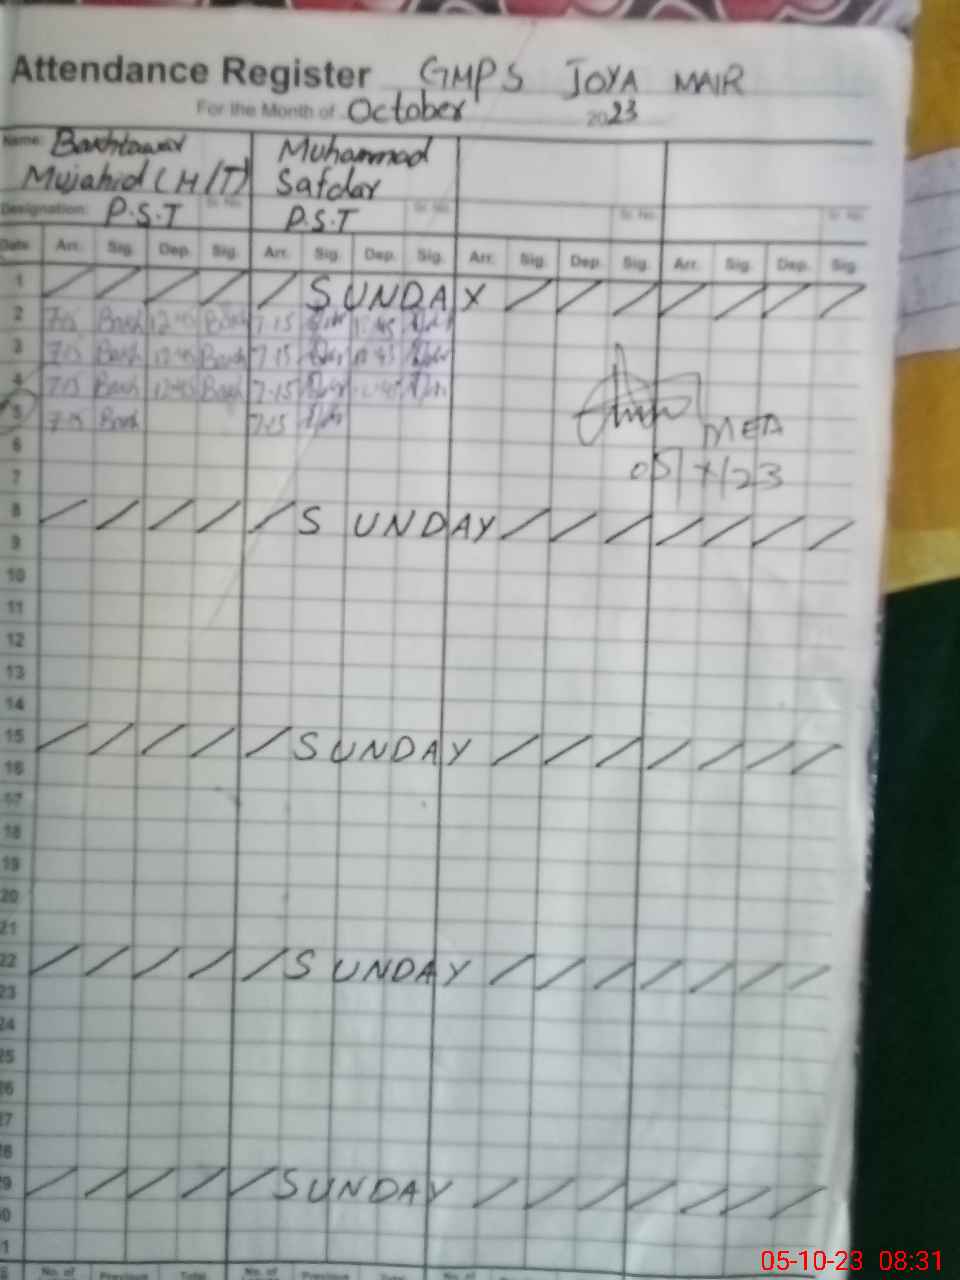 Attendance Register GMPS JOYA MAIR
For the Month of October 2023
Name: Bakhtawar Muhammad
Mujahid (H/T) Safdar
Designation: P.S.T Sr. No. P.S.T Sr. No. Sr. No. Sr. No.
Date Arr. Sig. Dep. Sig. Arr. Sig. Dep. Sig. Arr. Sig. Dep. Sig. Arr. Sig. Dep. Sig.
1 SUNDAY
2 7:15 Bakh 12:45 Bakh 7:15
3 7:15 Bakh 12:45 Bakh 7:15
4 7:15 Bakh 12:45 Bakh 7:15
5 7:15 Bakh 7:15
MEA
6
05/X/23
7
8 SUNDAY
9
10
11
12
13
14
15 SUNDAY
16
17
18
19
20
21
22 SUNDAY
23
24
25
26
27
28
29 SUNDAY
30
31
No. of No. of No. of
05-10-23 08:31